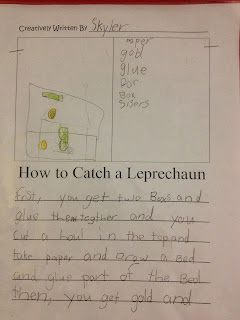 Creatively Written By Skyler
paper
gold
glue
Dor
Box
Sisers
How to Catch a Leprechaun
First, you get two Boxs and
glue them Together and you
cut a houl in the top and
take paper and Draw a Bed
and glue part of the Bed
then, you get gold and